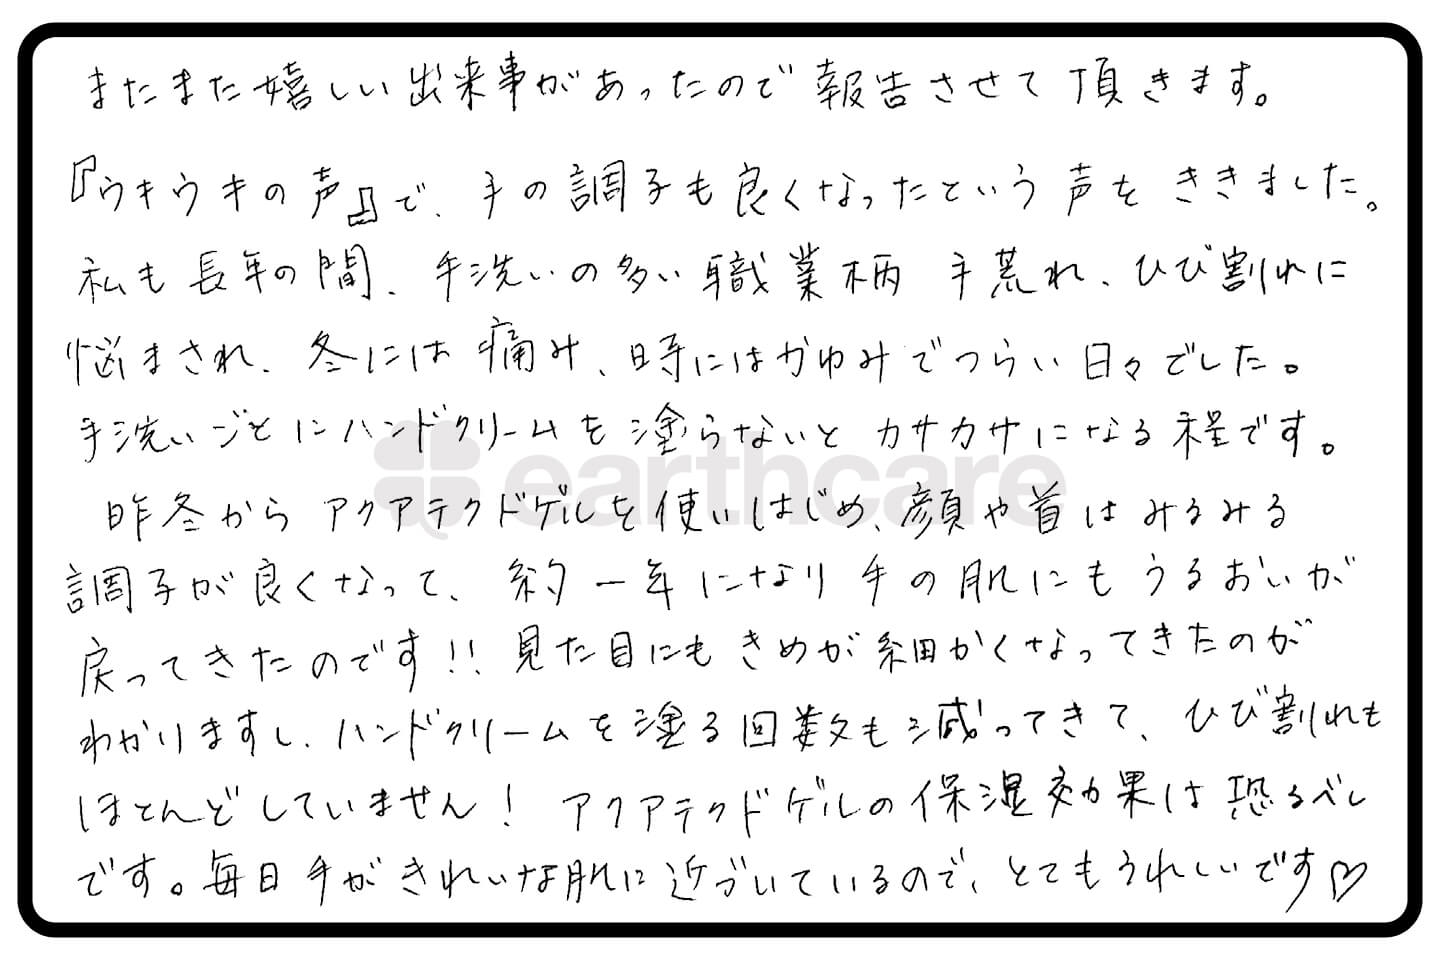 またまた嬉しい出来事があったので報告させて頂きます。
『ウキウキの声』で、手の調子も良くなったという声をききました。
私も長年の間、手洗いの多い職業柄 手荒れ、ひび割れに
悩まされ、冬には痛み、時にはかゆみでつらい日々でした。
手洗いごとにハンドクリームを塗らないとカサカサになる程です。
earthcare
昨冬からアクアテクトゲルを使いはじめ、顔や首はみるみる
調子が良くなって、約一年になり手の肌にもうるおいが
戻ってきたのです!!見た目にもきめが細かくなってきたのが
わかりますし、ハンドクリームを塗る回数も減ってきて、ひび割れも
ほとんどしていません!アクアテクトゲルの保湿効果は恐るべし
です。毎日手がきれいな肌に近づいているので、とてもうれしいです♡